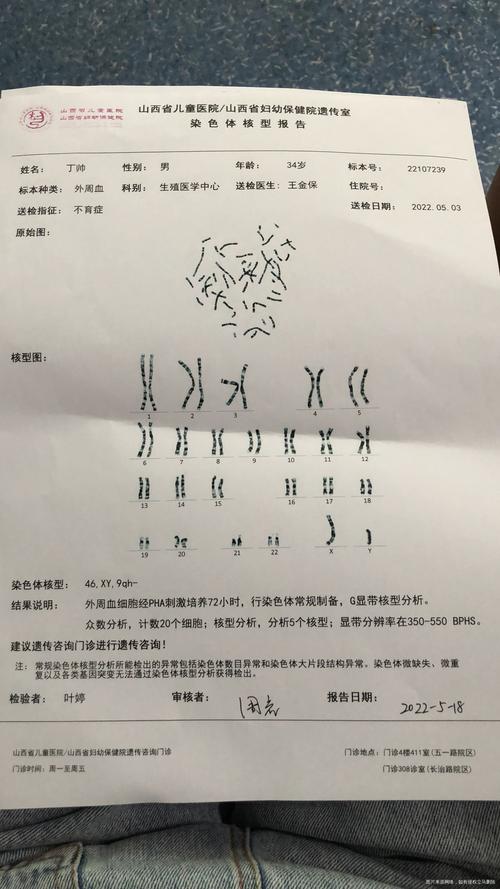 山西省儿童医院
山西省妇幼保健院
山西省儿童医院/山西省妇幼保健院遗传室
染色体核型报告
姓名： 丁帅 性别： 男 年龄： 34岁 标本号： 22107239
标本种类： 外周血 科别： 生殖医学中心 送检医生：王金保 住院号：
送检指征： 不育症 送检日期： 2022.05.03
原始图：
核型图：
1 2 3 4 5
6 7 8 9 10 11 12
13 14 15 16 17 18
19 20 21 22 X Y
染色体核型： 46,XY,9qh-
结果说明： 外周血细胞经PHA刺激培养72小时，行染色体常规制备，G显带核型分析。
众数分析，计数20个细胞；核型分析，分析5个核型；显带分辨率在350-550 BPHS。
建议遗传咨询门诊进行遗传咨询！
注： 常规染色体核型分析所能检出的异常包括染色体数目异常和染色体大片段结构异常。染色体微缺失、微重
复以及各类基因突变无法通过染色体核型分析获得检出。
检验者： 叶婷 审核者： 报告日期： 2022-5-18
山西省儿童医院/山西省妇幼保健院遗传咨询门诊 门诊地点：门诊4楼411室(五一路院区)
门诊时间：周一至周五 门诊308诊室(长治路院区)
图片来源网络，如有侵权立马删除